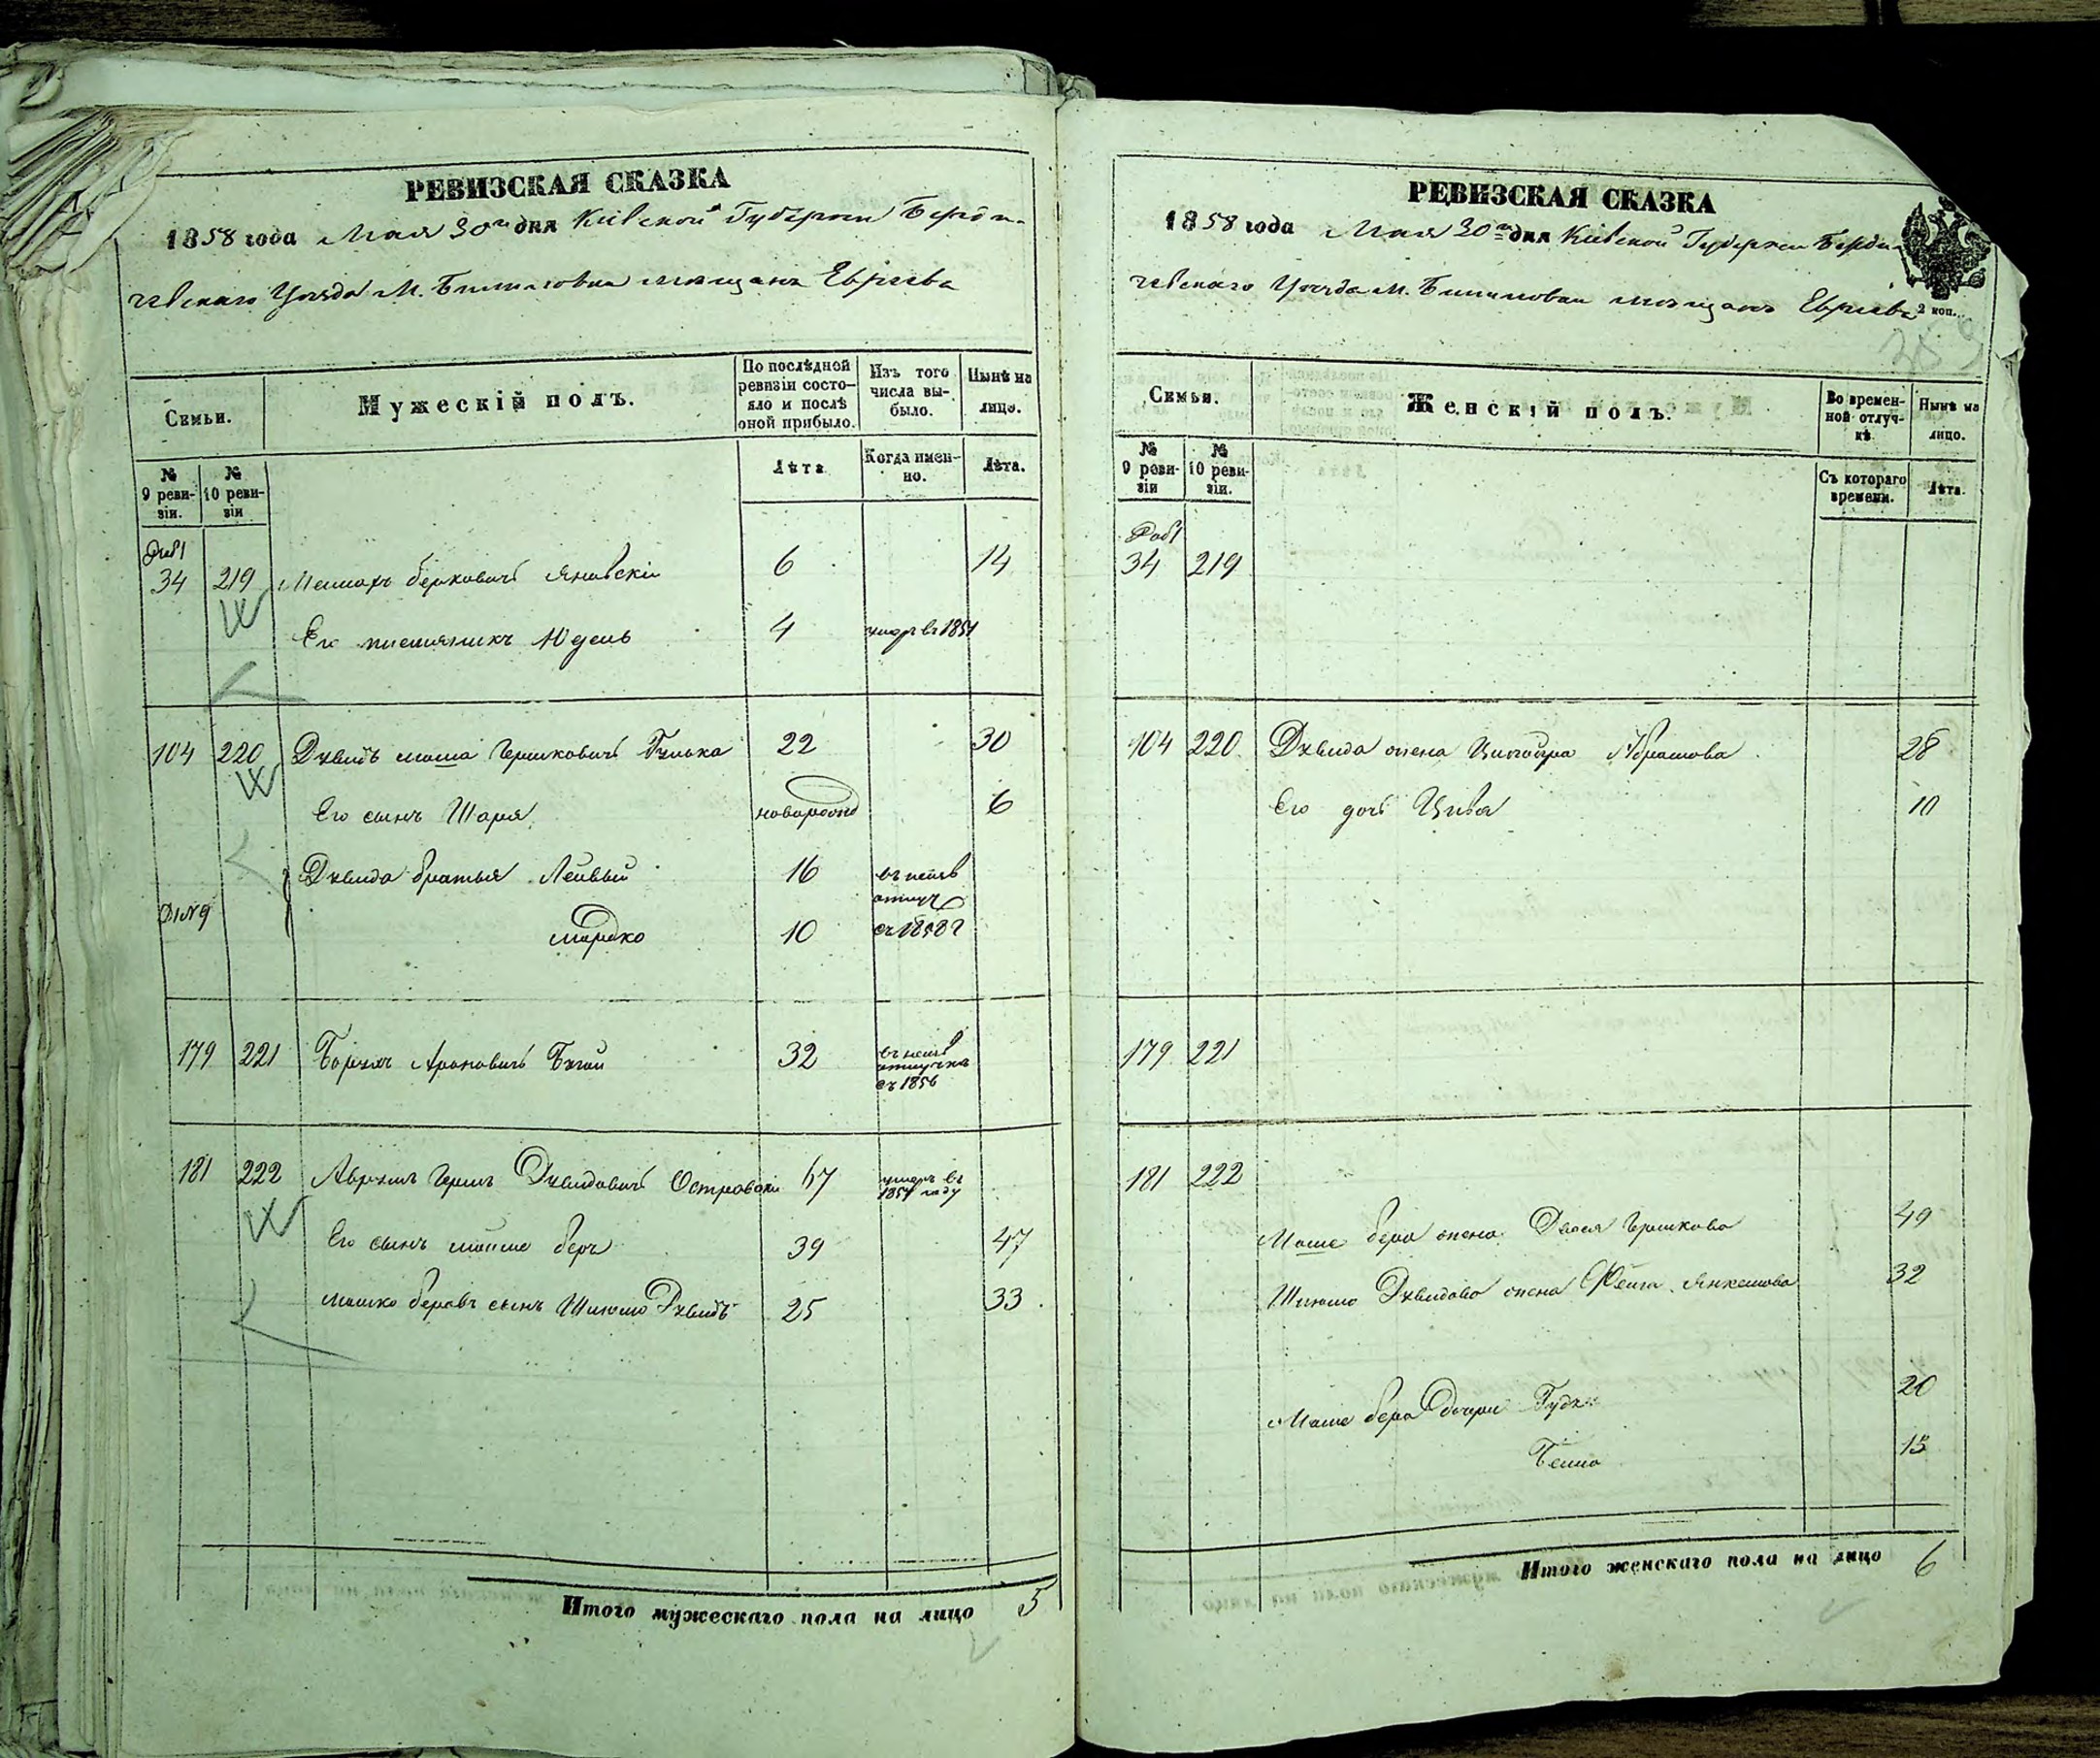 РЕВИЗСКАЯ СКАЗКА
1858 года Мая 30го дня Кіевской Губерніи Берди-
чевскаго Уѣзда М. мѣщанъ Евреевъ
Семьи.
Мужескій полъ.
По послѣдной ревизіи состо-
яло и послѣ оной прибыло.
Изъ того числа вы-
было.
Нынѣ на лицо.
№ 9 реви-
зіи.
№ 10 реви-
зіи
Лѣта
Когда имен-
но.
Лѣта.
34 219 Берковичъ Яновскій 6 14
Его племянникъ Юдель 4 умеръ въ 1851
104 220 Давидъ Моша Гершковичъ 22 30
Его сынъ Шая 6
Давида братья Лейбый 16 въ неизв отлуч
Мордко 10 съ 1858 г
179 221 Ароновичъ 32 въ неизв отлучкѣ съ 1856
181 222 Аврумъ Гершъ Давидовичъ Островскій 67 умеръ въ 185 году
Его сынъ Мойше Беръ 39 47
Мошко Беровъ сынъ Шлиомо Давидъ 25 33
Итого мужескаго пола на лицо 5
РЕВИЗСКАЯ СКАЗКА
1858 года Мая 30го дня Кіевской Губерніи Берди-
чевскаго Уѣзда М. мѣщанъ Евреевъ
2 коп.
Семьи.
Женскій полъ.
Во времен-
ной отлуч-
кѣ
Нынѣ на лицо.
№ 9 реви-
зіи
№ 10 реви-
зіи.
Съ котораго времени.
Лѣта.
34 219
104 220 Давида жена Абрамова 28
Его дочь Цивья 10
179 221
181 222
Моше Бера жена Двося Гершкова 49
Шлиома Давидова жена Фейга Янкелова 32
Моше Бера дочери 20
Бейла 15
Итого женскаго пола на лицо 6